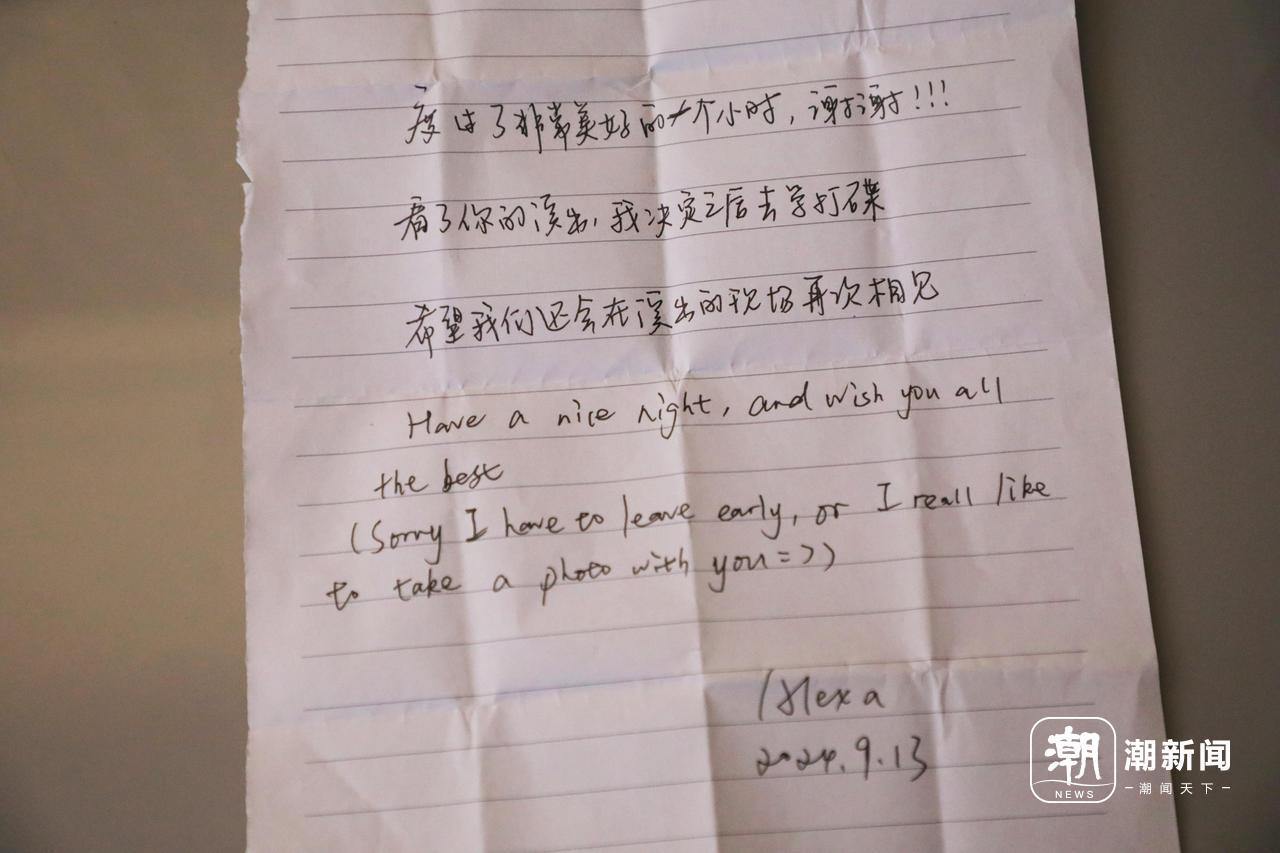 度过了非常美好的一个小时，谢谢！！！
看了你的演出，我决定之后去学打碟
希望我们还会在演出的现场再次相见
Have a nice night, and wish you all
the best
(Sorry I have to leave early, or I reall like
to take a photo with you=))
/Alexa
2024.9.13
潮 NEWS
潮新闻
潮闻天下